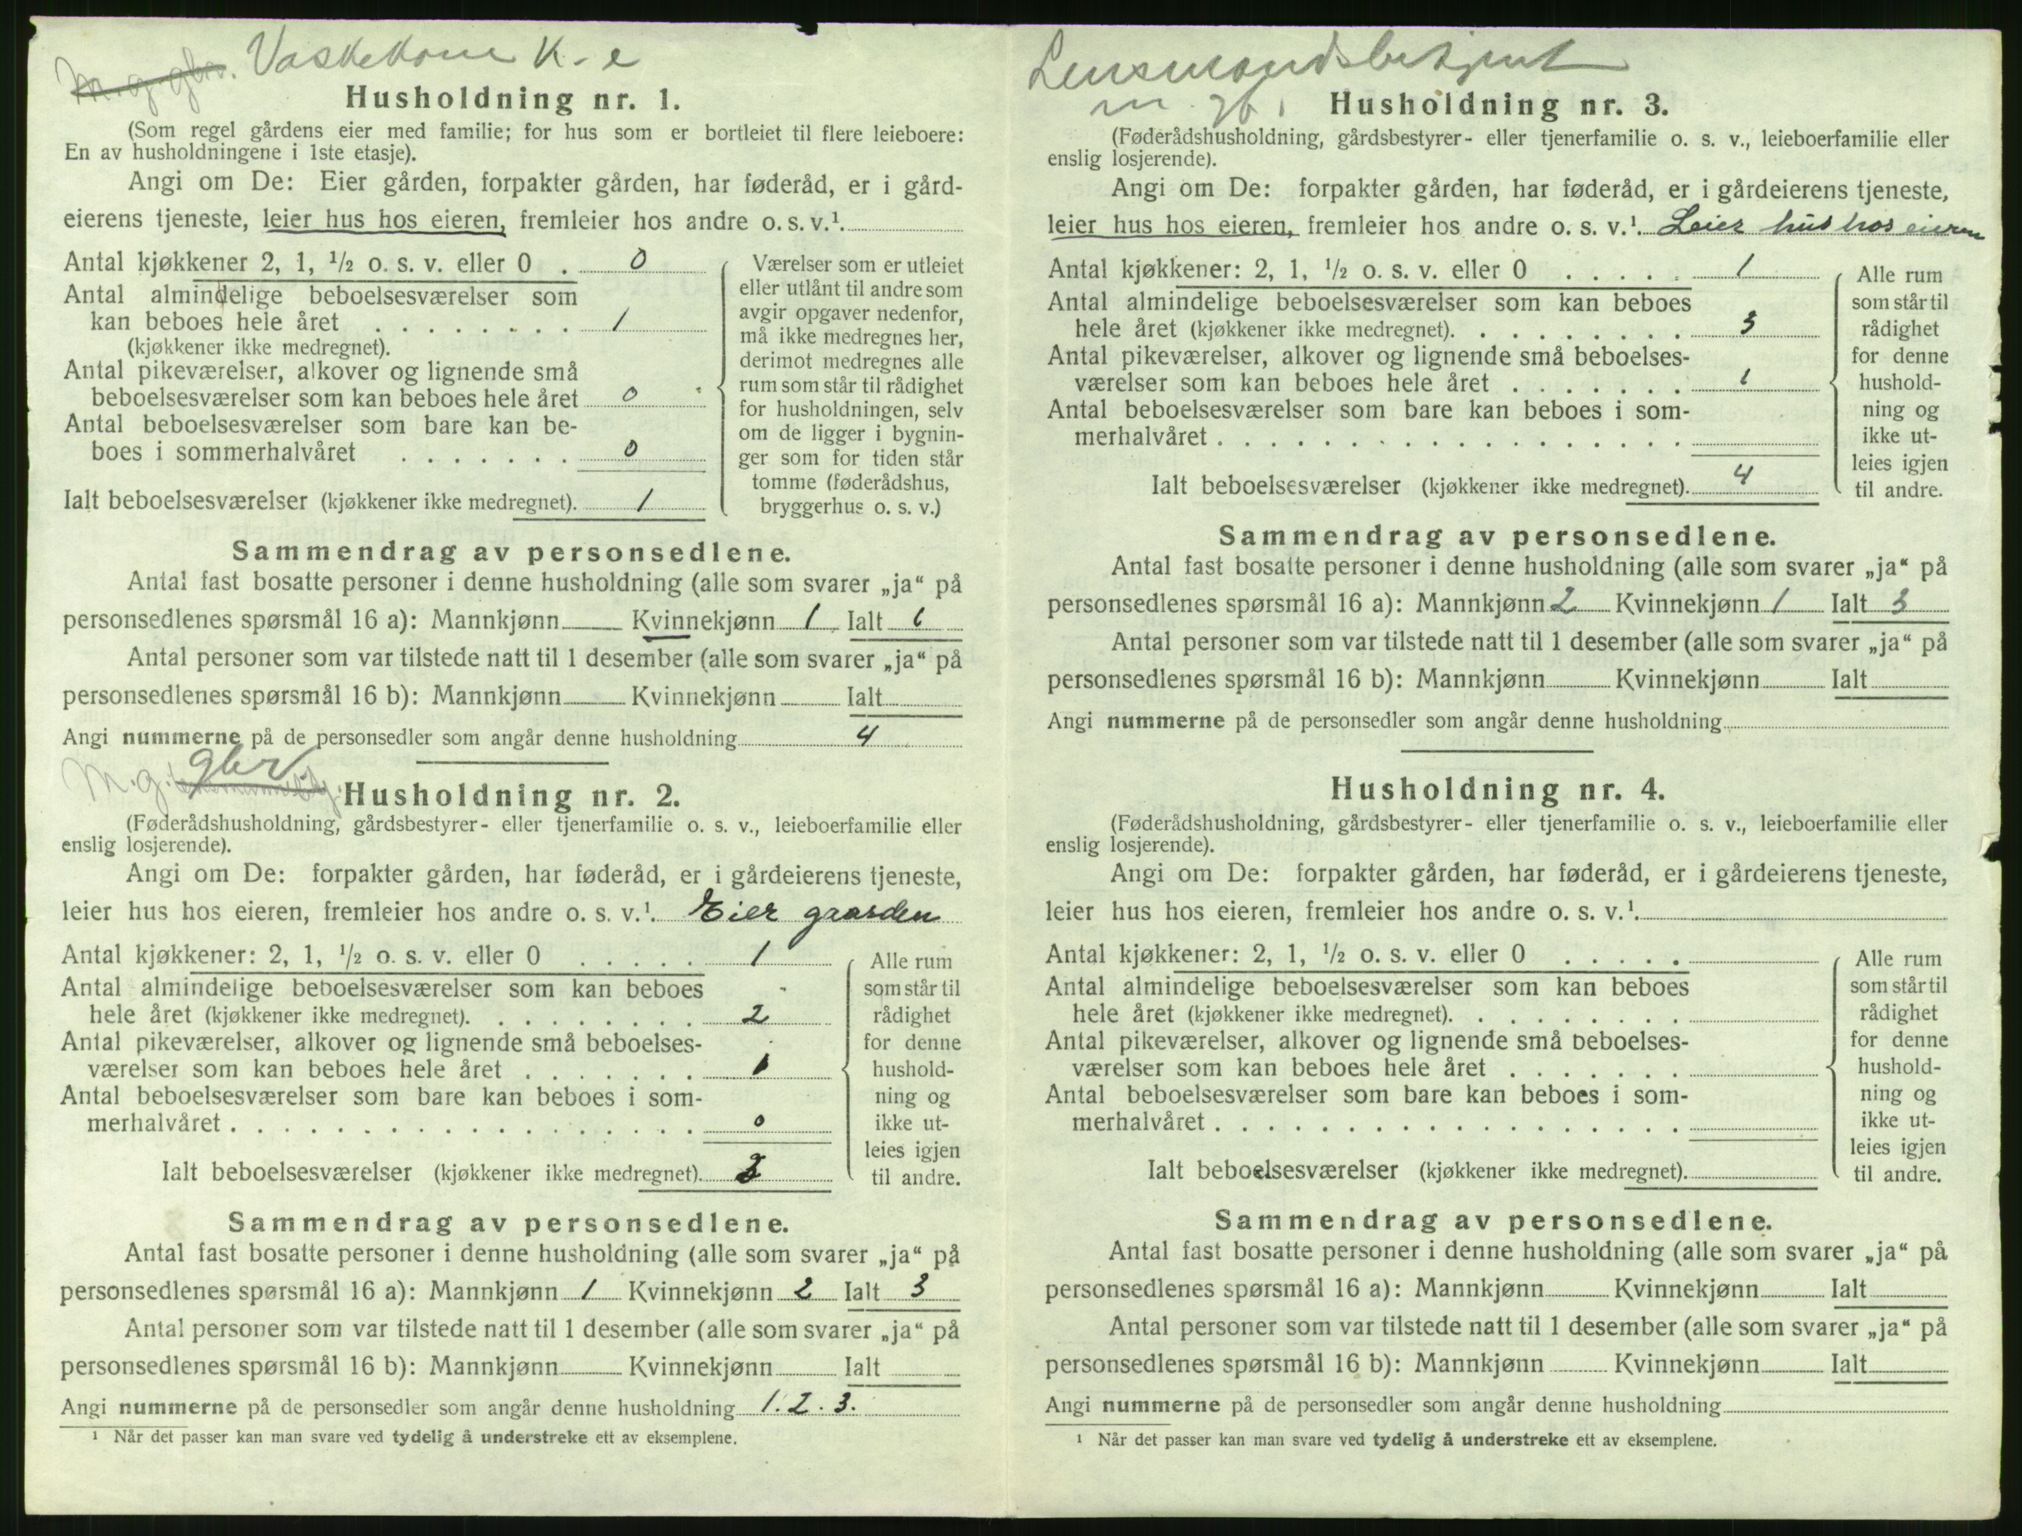 Vaskekone K-e
Husholdning nr. 1.
(Som regel gårdens eier med familie; for hus som er bortleiet til flere leieboere:
En av husholdningene i 1ste etasje).
Angi om De: Eier gården, forpakter gården, har føderåd, er i gård-
eierens tjeneste, leier hus hos eieren, fremleier hos andre o. s. v.¹.
Antal kjøkkener 2, 1, ½ o. s. v. eller 0 . 0
Antal almindelige beboelsesværelser som
kan beboes hele året . . . . . . . . 1
(kjøkkener ikke medregnet).
Antal pikeværelser, alkover og lignende små
beboelsesværelser som kan beboes hele året 0
Antal beboelsesværelser som bare kan be-
boes i sommerhalvåret . . . . . . . 0
Ialt beboelsesværelser (kjøkkener ikke medregnet). 1
Værelser som er utleiet
eller utlånt til andre som
avgir opgaver nedenfor,
må ikke medregnes her,
derimot medregnes alle
rum som står til rådighet
for husholdningen, selv
om de ligger i bygnin-
ger som for tiden står
tomme (føderådshus,
bryggerhus o. s. v.)
Sammendrag av personsedlene.
Antal fast bosatte personer i denne husholdning (alle som svarer „ja“ på
personsedlenes spørsmål 16 a): Mannkjønn Kvinnekjønn 1 Ialt 1
Antal personer som var tilstede natt til 1 desember (alle som svarer „ja“ på
personsedlenes spørsmål 16 b): Mannkjønn Kvinnekjønn Ialt
Angi nummerne på de personsedler som angår denne husholdning 4
M.g. gbr.
Husholdning nr. 2.
(Føderådshusholdning, gårdsbestyrer- eller tjenerfamilie o. s. v., leieboerfamilie eller
enslig losjerende).
Angi om De: forpakter gården, har føderåd, er i gårdeierens tjeneste,
leier hus hos eieren, fremleier hos andre o. s. v.¹. Eier gaarden
Antal kjøkkener: 2, 1, ½ o. s. v. eller 0 . . . . . 1
Antal almindelige beboelsesværelser som kan beboes
hele året (kjøkkener ikke medregnet). . . . . . . . . 2
Antal pikeværelser, alkover og lignende små beboelses-
værelser som kan beboes hele året . . . . . . . 1
Antal beboelsesværelser som bare kan beboes i som-
merhalvåret . . . . . . . . . . . . . . . . . . 0
Ialt beboelsesværelser (kjøkkener ikke medregnet). 3
Alle rum
som står til
rådighet
for denne
hushold-
ning og
ikke ut-
leies igjen
til andre.
Sammendrag av personsedlene.
Antal fast bosatte personer i denne husholdning (alle som svarer „ja“ på
personsedlenes spørsmål 16 a): Mannkjønn 1 Kvinnekjønn 2 Ialt 3
Antal personer som var tilstede natt til 1 desember (alle som svarer „ja“ på
personsedlenes spørsmål 16 b): Mannkjønn Kvinnekjønn Ialt
Angi nummerne på de personsedler som angår denne husholdning 1. 2. 3.
¹ Når det passer kan man svare ved tydelig å understreke ett av eksemplene.
Lensmandsbetjent
m. gb.
Husholdning nr. 3.
(Føderådshusholdning, gårdsbestyrer- eller tjenerfamilie o. s. v., leieboerfamilie eller
enslig losjerende).
Angi om De: forpakter gården, har føderåd, er i gårdeierens tjeneste,
leier hus hos eieren, fremleier hos andre o. s. v.¹. Leier hus hos eieren
Antal kjøkkener: 2, 1, ½ o. s. v. eller 0 . . . . . 1
Antal almindelige beboelsesværelser som kan beboes
hele året (kjøkkener ikke medregnet). . . . . . . . . 3
Antal pikeværelser, alkover og lignende små beboelses-
værelser som kan beboes hele året . . . . . . . 1
Antal beboelsesværelser som bare kan beboes i som-
merhalvåret . . . . . . . . . . . . . . . . . .
Ialt beboelsesværelser (kjøkkener ikke medregnet). 4
Alle rum
som står til
rådighet
for denne
hushold-
ning og
ikke ut-
leies igjen
til andre.
Sammendrag av personsedlene.
Antal fast bosatte personer i denne husholdning (alle som svarer „ja“ på
personsedlenes spørsmål 16 a): Mannkjønn 2 Kvinnekjønn 1 Ialt 3
Antal personer som var tilstede natt til 1 desember (alle som svarer „ja“ på
personsedlenes spørsmål 16 b): Mannkjønn Kvinnekjønn Ialt
Angi nummerne på de personsedler som angår denne husholdning
Husholdning nr. 4.
(Føderådshusholdning, gårdsbestyrer- eller tjenerfamilie o. s. v., leieboerfamilie eller
enslig losjerende).
Angi om De: forpakter gården, har føderåd, er i gårdeierens tjeneste,
leier hus hos eieren, fremleier hos andre o. s. v.¹.
Antal kjøkkener: 2, 1, ½ o. s. v. eller 0 . . . . .
Antal almindelige beboelsesværelser som kan beboes
hele året (kjøkkener ikke medregnet). . . . . . . . .
Antal pikeværelser, alkover og lignende små beboelses-
værelser som kan beboes hele året . . . . . . .
Antal beboelsesværelser som bare kan beboes i som-
merhalvåret . . . . . . . . . . . . . . . . . .
Ialt beboelsesværelser (kjøkkener ikke medregnet).
Alle rum
som står til
rådighet
for denne
hushold-
ning og
ikke ut-
leies igjen
til andre.
Sammendrag av personsedlene.
Antal fast bosatte personer i denne husholdning (alle som svarer „ja“ på
personsedlenes spørsmål 16 a): Mannkjønn Kvinnekjønn Ialt
Antal personer som var tilstede natt til 1 desember (alle som svarer „ja“ på
personsedlenes spørsmål 16 b): Mannkjønn Kvinnekjønn Ialt
Angi nummerne på de personsedler som angår denne husholdning
¹ Når det passer kan man svare ved tydelig å understreke ett av eksemplene.